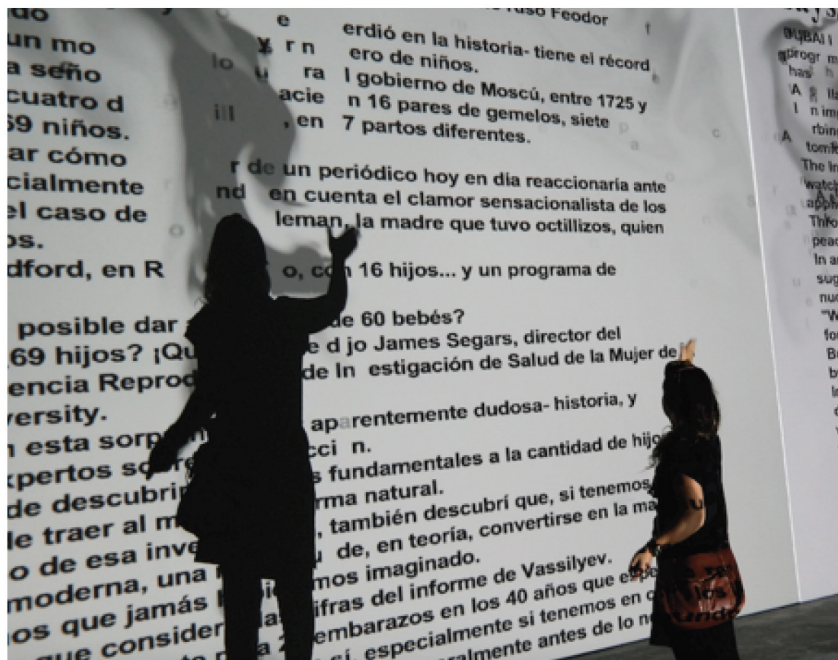 do
un mo
a seño
cuatro d
69 niños.
ar cómo
cialmente
el caso de
os.
dford, en R
posible dar
69 hijos? ¡Qu
encia Reprod
versity.
n esta sorp
xpertos sobre
de descubrir
le traer al m
o de esa inve
moderna, una
nos que jamás
que consider
Feodor
erdió en la historia- tiene el récord
ero de niños.
l gobierno de Moscú, entre 1725 y
acie n 16 pares de gemelos, siete
, en 7 partos diferentes.
r de un periódico hoy en día reaccionaría ante
nd en cuenta el clamor sensacionalista de los
leman, la madre que tuvo octillizos, quien
o, con 16 hijos... y un programa de
de 60 bebés?
e d jo James Segars, director del
de In estigación de Salud de la Mujer de
aparentemente dudosa- historia, y
cci n.
s fundamentales a la cantidad de hijo
rma natural.
, también descubrí que, si tenemos
u de, en teoría, convertirse en la ma
mos imaginado.
ifras del informe de Vassilyev.
embarazos en los 40 años que espe
sí, especialmente si tenemos en c
ralmente antes de lo n
DUBAI
progr m
has
The In
watch
Thro
peac
In a
sug
nuc
"W
fo